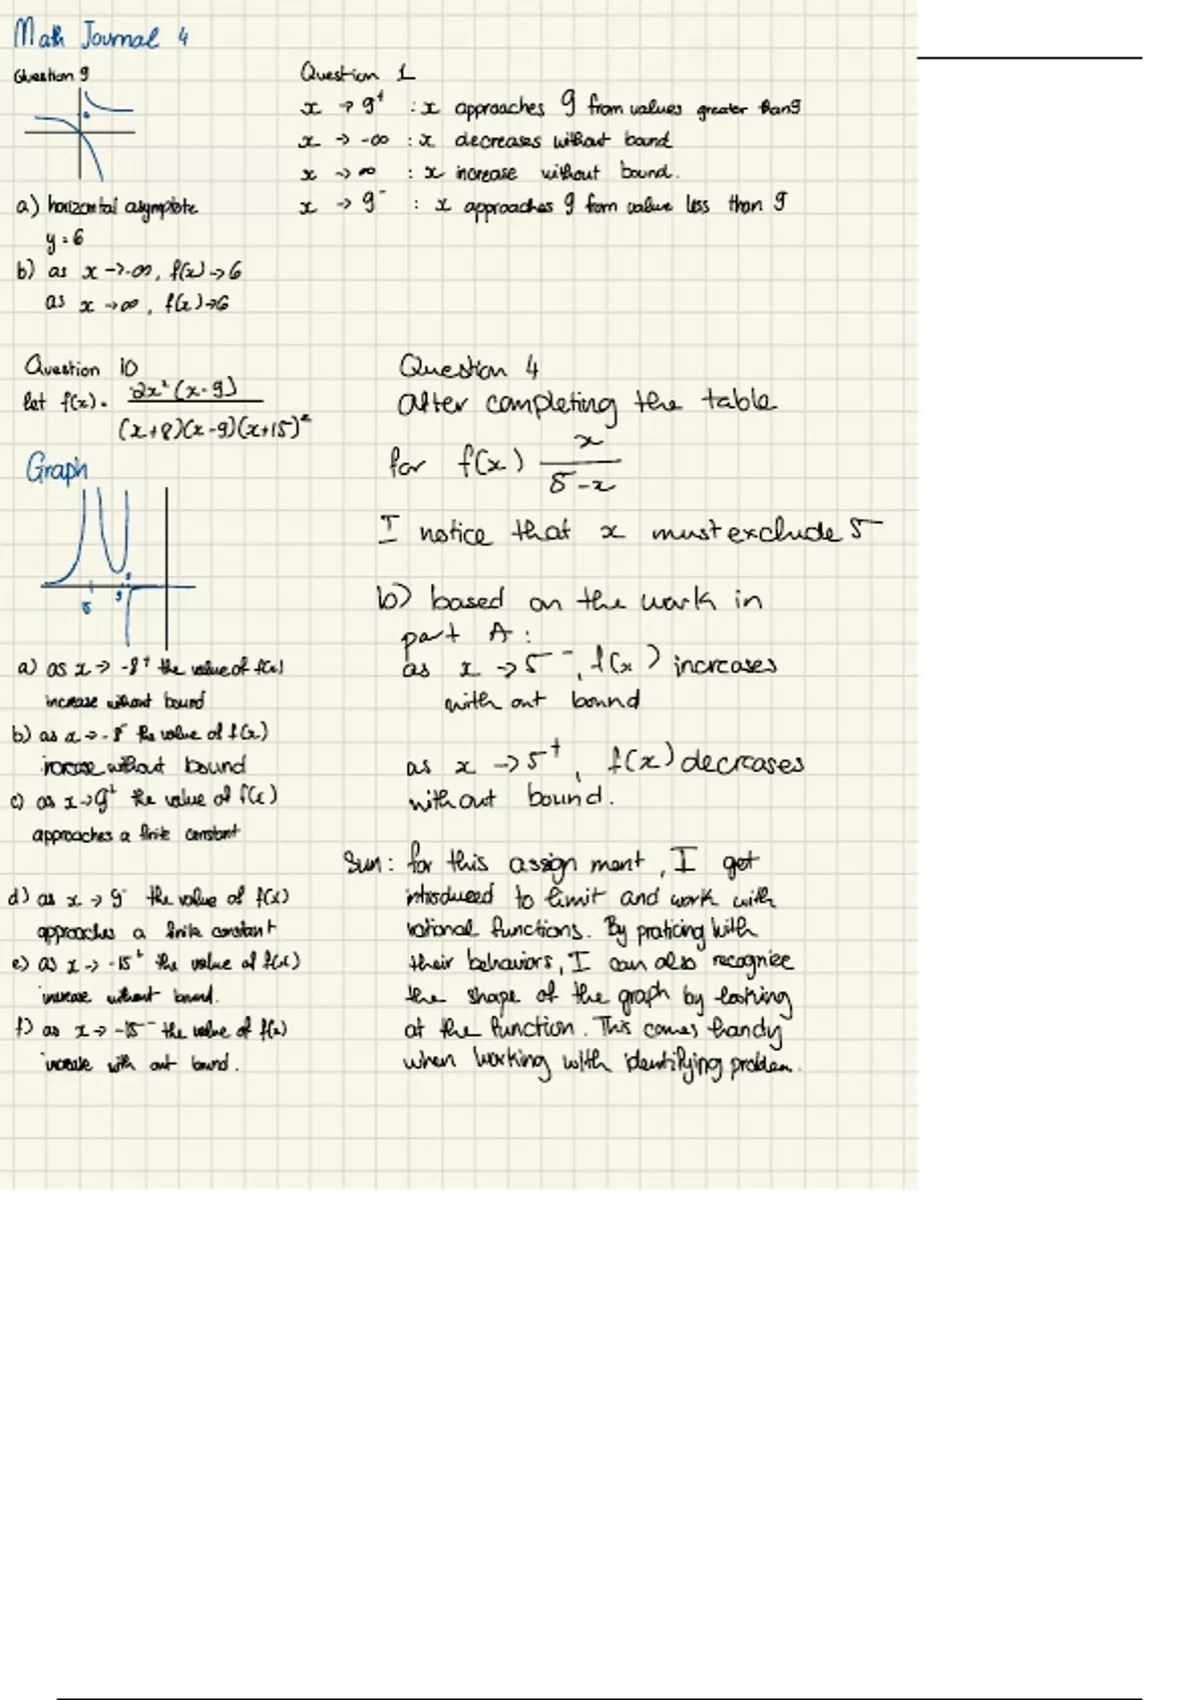 Math Journal 4
Question 9
a) horizontal asymptote
y = 6
b) as x → -∞, f(x) → 6
as x → ∞, f(x) → 6
Question 1
x → 9⁺ : x approaches 9 from values greater than 9
x → -∞ : x decreases without bound
x → ∞ : x increase without bound.
x → 9⁻ : x approaches 9 from value less than 9
Question 10
let f(x) = 2x²(x-9)
(x+8)(x-9)(x+15)²
Graph
a) as x → -8⁺ the value of f(x)
increase without bound
b) as x → -8 the value of f(x)
increase without bound
c) as x → 9⁺ the value of f(x)
approaches a finite constant
d) as x → 9⁻ the value of f(x)
approaches a finite constant
e) as x → -15⁺ the value of f(x)
increase without bound.
f) as x → -15⁻ the value of f(x)
increase with out bound.
Question 4
after completing the table
for f(x) x
5-x
I notice that x must exclude 5
b) based on the work in
part A:
as x → 5⁻, f(x) increases
with out bound
as x → 5⁺, f(x) decreases
without bound.
Sum: for this assignment, I get
introduced to limit and work with
rational functions. By praticing with
their behaviors, I can also recognize
the shape of the graph by looking
at the function. This comes handy
when working with identifying problem.